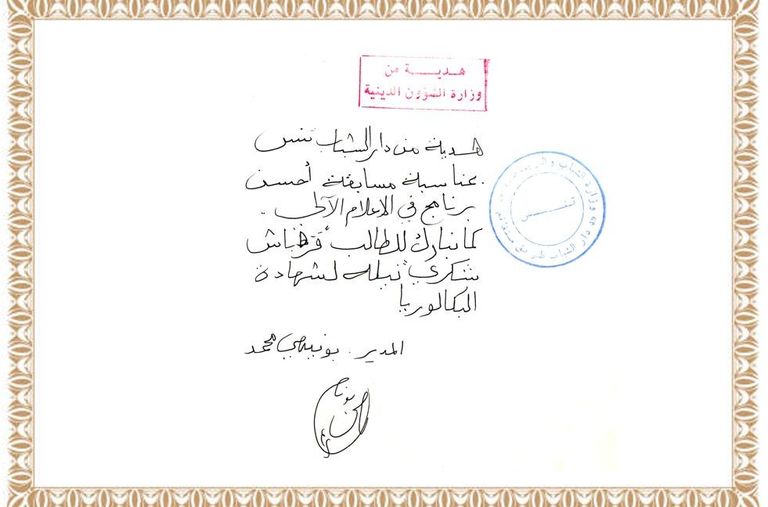 هديــــة من
وزارة الشؤون الدينية
هدية من دار الشباب تنس
بمناسبة مسابقة أحسن
برنامج في الاعلام الآلي .
كما نبارك للطالب "قرطباش
شكري" نيله لشهادة
البكالوريا
المدير . بونيهي محمد
وزارة الشباب والرياضة
دار الشباب
تنس